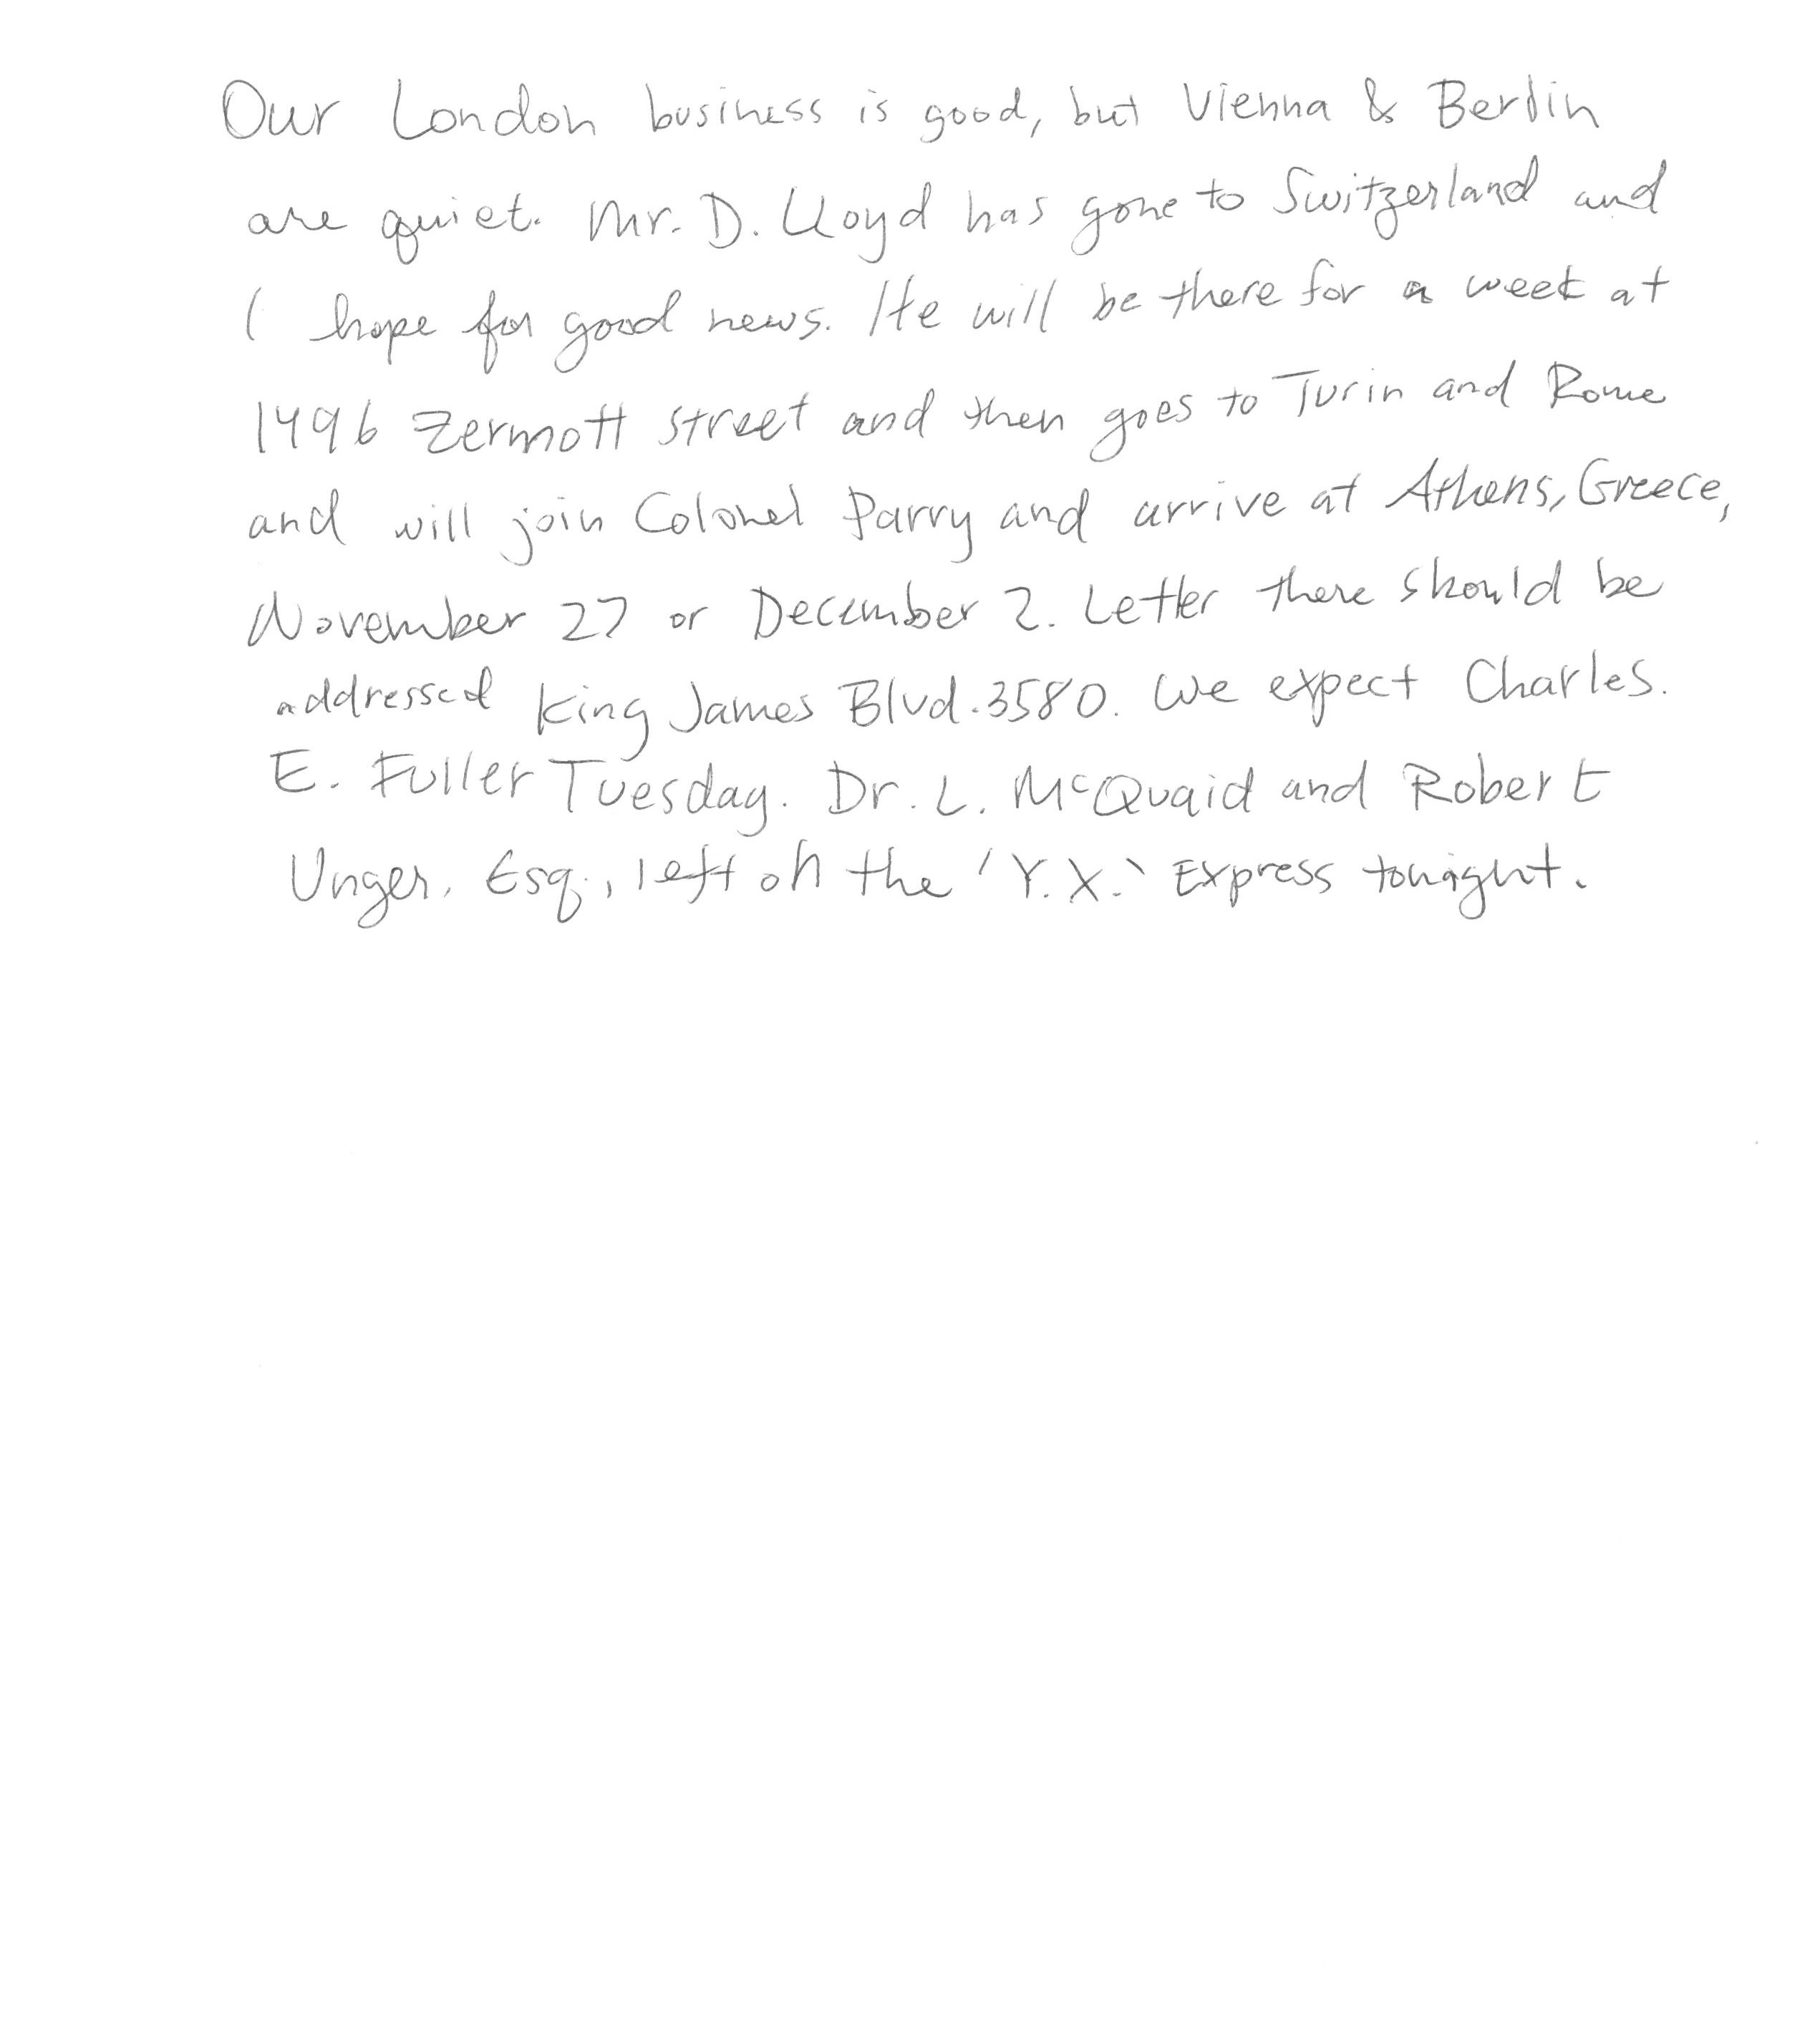 Our London business is good, but Vienna & Berlin
are quiet. Mr. D. Lloyd has gone to Switzerland and
I hope for good news. He will be there for a week at
1496 Zermott street and then goes to Turin and Rome
and will join Colonel Parry and arrive at Athens, Greece,
November 27 or December 2. Letter there should be
addressed King James Blvd. 3580. We expect Charles.
E. Fuller Tuesday. Dr. L. McQuaid and Robert
Unger, Esq., left on the 'Y.X.' Express tonight.